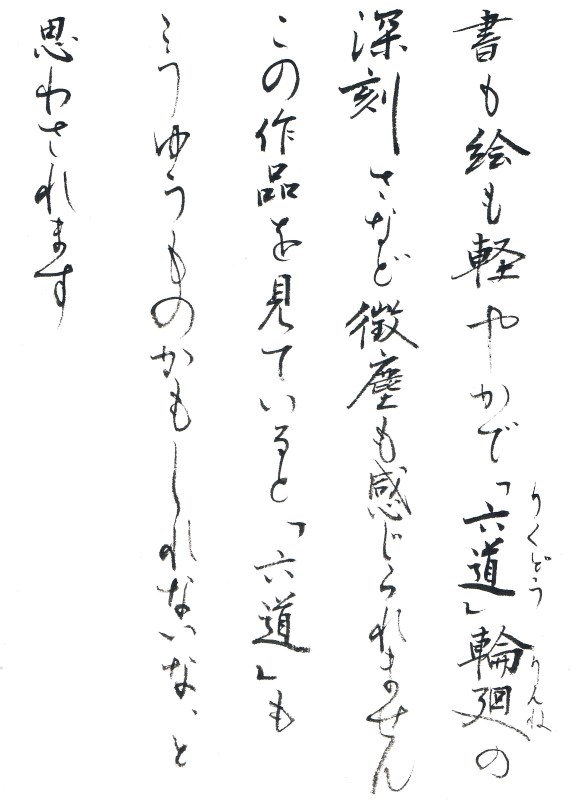 書も絵も軽やかで「六道」輪廻の
りくどう
りんね
深刻さなど微塵も感じられません
この作品を見ていると「六道」も
こうゆうものかもしれないな、と
思わされます